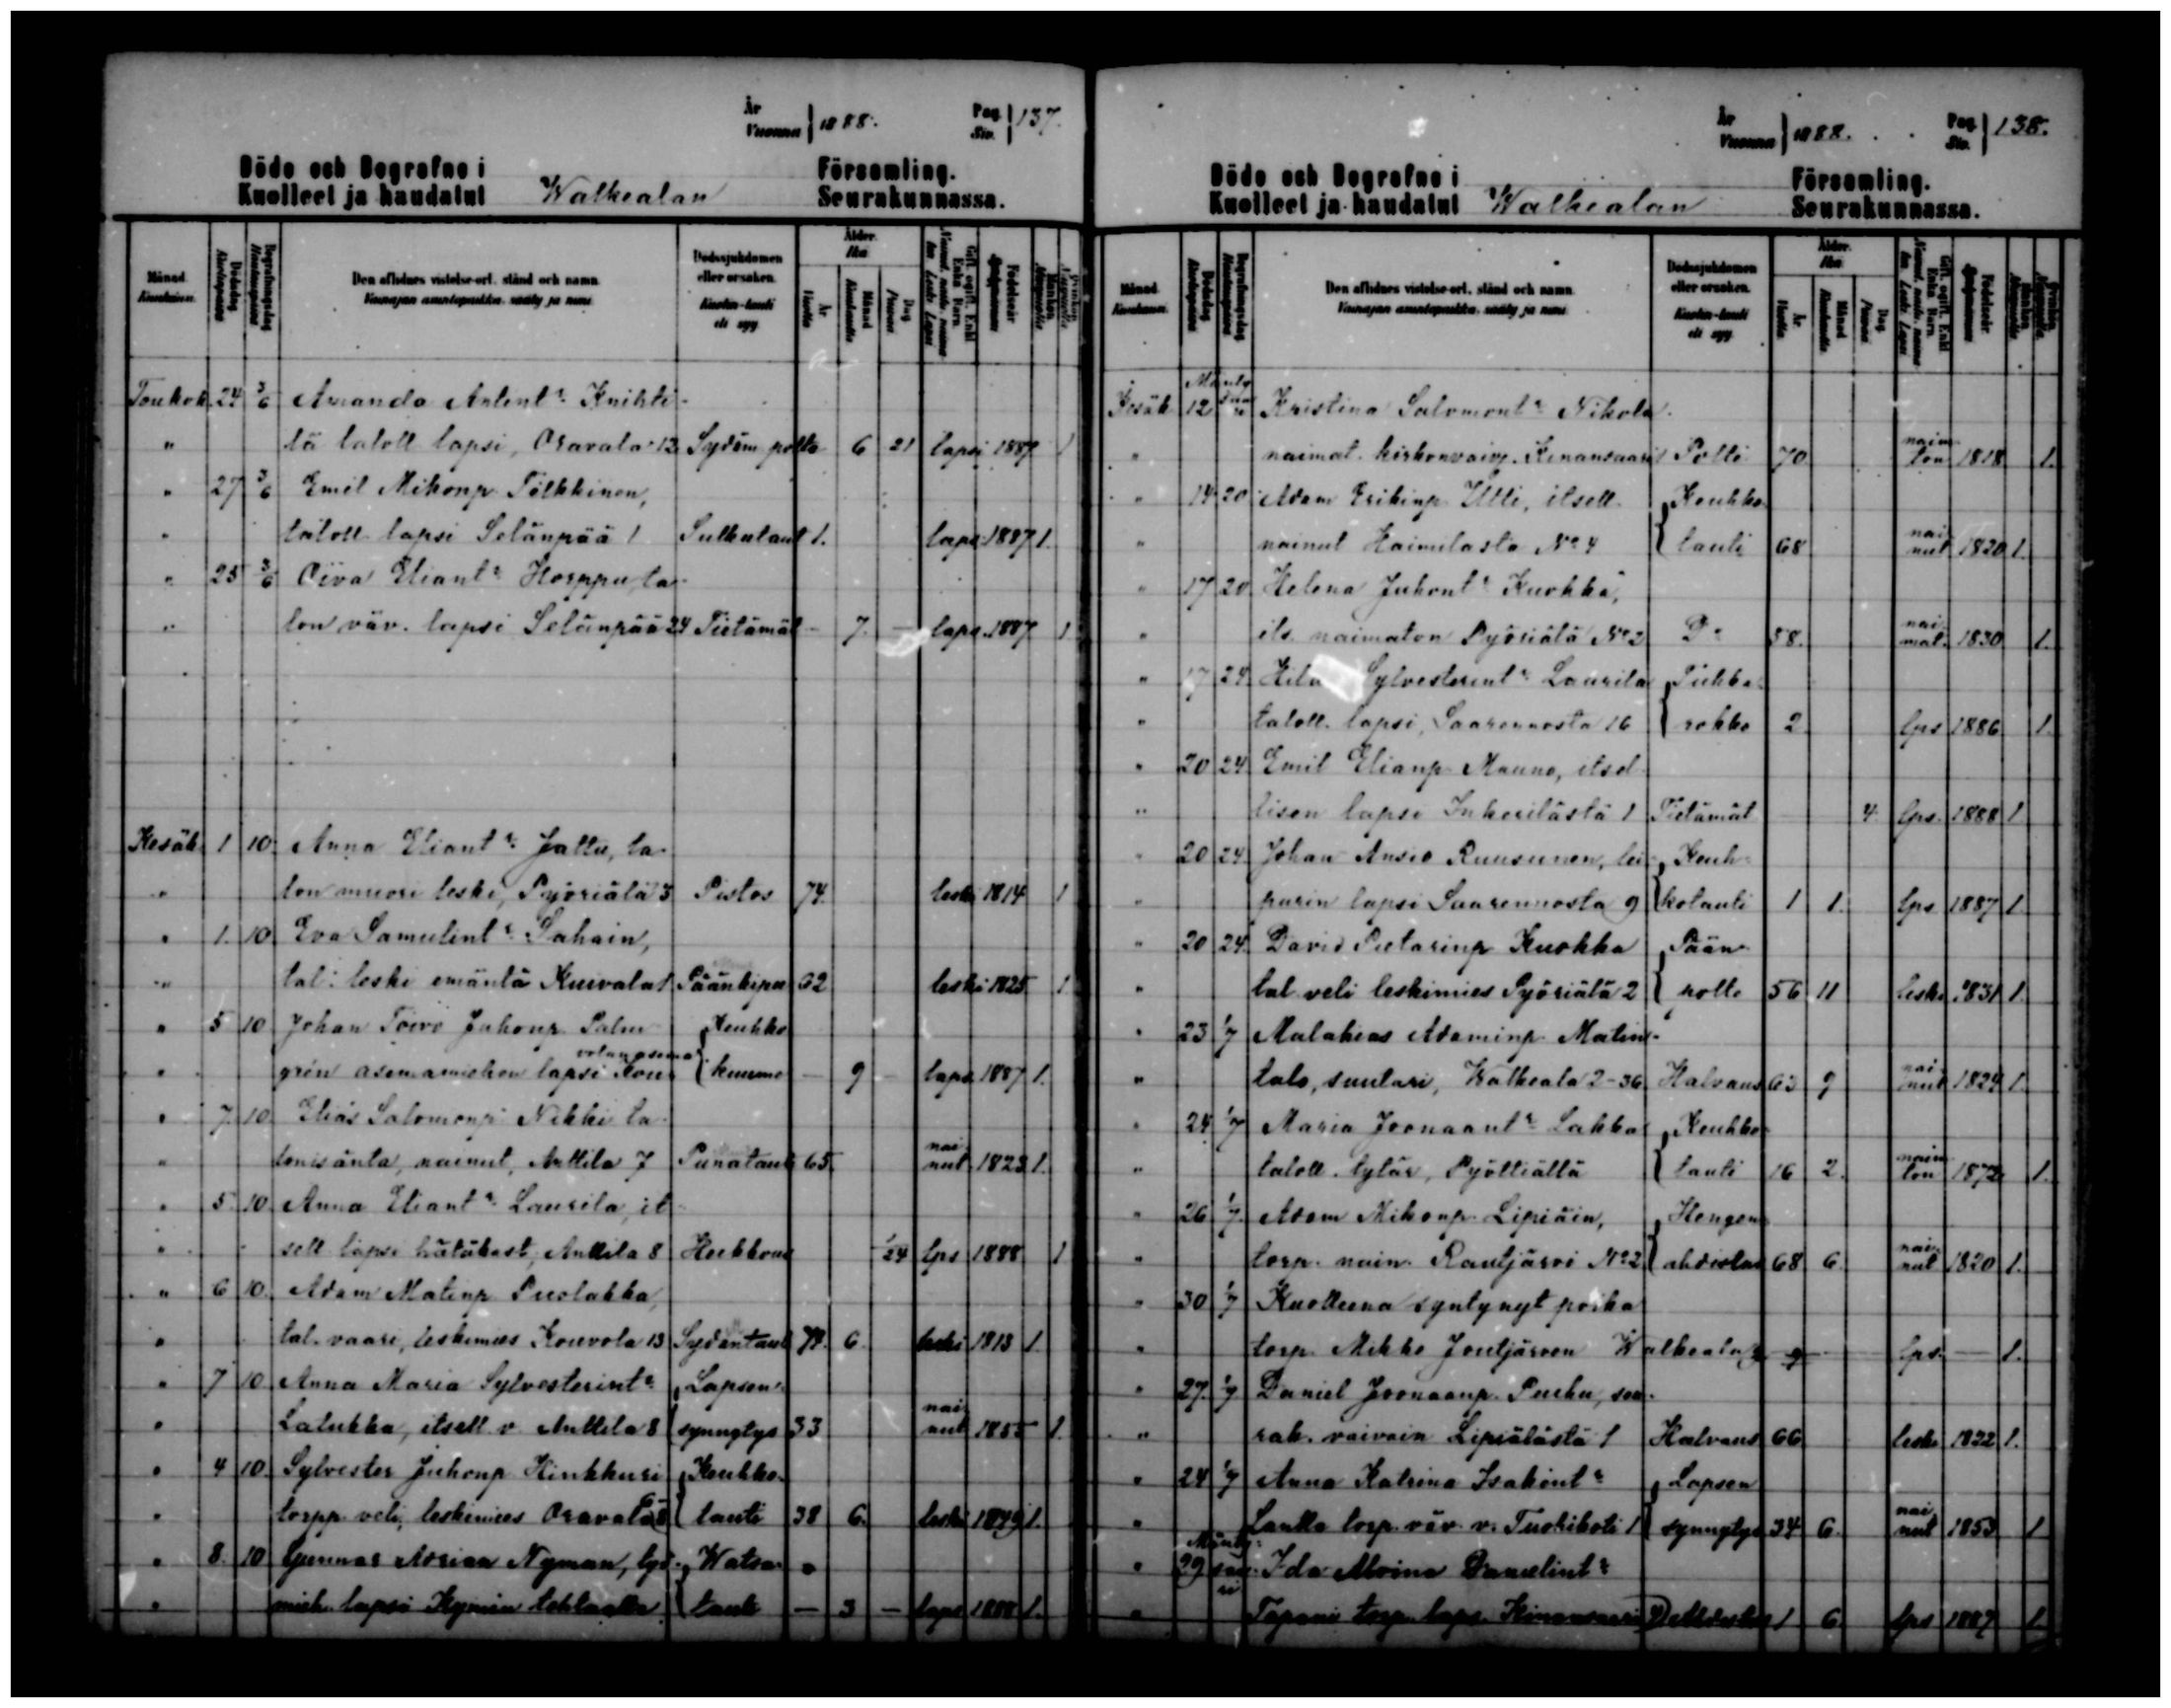 År
Vuonna } 1888. Pag. Siv. } 137.
Döde och Begrafne i Församling.
Kuolleet ja haudatut Walkealan Seurakunnassa.
Månad. Kuukausi. Dödsdag Kuolinpäivä Begrafningsdag Hautauspäivä Den aflidnes vistelse-ort, stånd och namn. Vainajan asuntopaikka, sääty ja nimi. Dödssjukdomen eller orsaken. Kuolin-tauti eli syy. Ålder. Ikä År Vuotta Månad Kuukautta Dag Päivää Gift, ogift, Enkl. Enka Barn. Födelseår Mankön Qvinkön
Toukok. 24 3/6 Amanda Antint:r Knihti-
" lä taloll lapsi, Oravala 13 Sydäm poltto 6 21 lapsi 1887 1
" 27 3/6 Emil Mikonp. Tölkkinen,
" taloll lapsi Selänpää 1 Sulkutaut 1. laps. 1887 1.
" 25 3/6 Oiva Eliant:r Horppu, ta-
" lon väv. lapsi Selänpää 24 Tietämät - 7. - laps. 1887 1
Kesäk. 1 10. Anna Eliant:r Jattu, ta-
" lon muori leski, Pyöriälä 3 Pistos 74. leski 1814 1
" 1. 10 Eva Samulint:r Sahain,
" tal. leski emäntä Kuivala 1 Päänkipu 62 leski 1825 1
" 5 10 Johan Toivo Juhonp. Palm-
" grén asemamiehen lapsi Kou- volan asema Keuhko kuume - 9 - laps 1887 1.
" 7. 10 Elias Salomonp. Nikki ta-
" lonisäntä, nainut, Anttila 7 Punataut 65. nai-nut 1823 1.
" 5. 10. Anna Eliant:r Laurila, it-
" sell lapsi hätäkast, Anttila 8 Heikkous 1/24 lps 1888 1
" 6 10. Adam Matinp. Puolakka,
" tal. vaari, leskimies Kouvola 13 Sydäntaut 74. 6. leski 1813 1.
" 7 10 Anna Maria Sylvesterint:r Lapsen-
" Latukka, itsell. v. Anttila 8 synnytys 33 nai-nut 1855 1.
" 4 10. Sylvester Juhonp Hinkkuri Keuhko-
" torpp. veli, leskimies Oravala 8 tauti 38 6. leski 1849 1.
" 8. 10 Gunnar Adrian Nyman, työ- Watsa-
" mieh. lapsi Kymin tehtaalla taut - 3 - laps 1888 1.
År
Vuonna } 1888. Pag. Siv. } 138.
Döde och Begrafne i Församling.
Kuolleet ja haudatut Walkealan Seurakunnassa.
Månad. Kuukausi. Dödsdag Kuolinpäivä Begrafningsdag Hautauspäivä Den aflidnes vistelse-ort, stånd och namn. Vainajan asuntopaikka, sääty ja nimi. Dödssjukdomen eller orsaken. Kuolin-tauti eli syy. Ålder. Ikä År Vuotta Månad Kuukautta Dag Päivää Gift, ogift, Enkl. Enka Barn. Födelseår Mankön Qvinkön
Kesäk 12 Kristina Salomont:r Nikola.
" naimat. kirkonvaiv. Kinansaari Poltto 70 naim-ton 1818 1.
" 14 20 Adam Erikinp. Utti, itsell. Keuhko
" nainut Haimilasta No 4 tauti 68 nai-nut 1820 1.
" 17 20 Helena Juhont:r Kuokka,
" its. naimaton Pyöriälä No 2 D:o 58. nai-mat. 1830 1.
" 17 24. Sylvesterint:r Laurila Tuhka-
" taloll. lapsi, Saarennosta 16 rokko 2 lps 1886 1.
" 20 24 Emil Elianp. Mauno, itsel-
" lisen lapsi Inkerilästä 1 Tietämät 4. lps. 1888 1
" 20 24. Johan Ansio Ruusunen, lei- Keuh-
" purin lapsi Saarennosta 9 kotauti 1 1. lps 1887 1.
" 20 24. David Pietarinp Kuokka Pään-
" tal. veli leskimies Pyöriälä 2 poltto 56 11 leski 1831 1.
" 23 1/7 Malakias Adaminp. Matin-
" talo, suutari, Walkeala 2-36 Halvaus 63 9 nai-nut 1824 1.
" 24. 1/7 Maria Joonaant:r Lakka Keuhko-
" taloll. tytär, Pyöttiältä tauti 16 2. naim-ton 1872 1.
" 26 1/7. Adam Mikonp. Lipiäin, Hengen-
" torp. nain. Rautjärvi No 2 ahdistus 68 6. nai-nut 1820 1.
" 30 1/7 Kuolleena syntynyt poika
" torp. Mikko Joutjärven Walkeala lps. - 1.
" 27. 1/7 Daniel Joonaanp. Puku, seu-
" rak. vaivain Lipiälästä 1 Halvaus 66 leski 1822 1.
" 24 1/7 Anna Katrina Isakint:r Lapsen
" Lantta torp. väv. v. Tuohikoti 1 synnytys 34 6. nai-nut 1853 1
" 29 Ida Alvina Danielint:r
" Tapani torp. laps. Kinansaari 1 6. lps 1887 1.